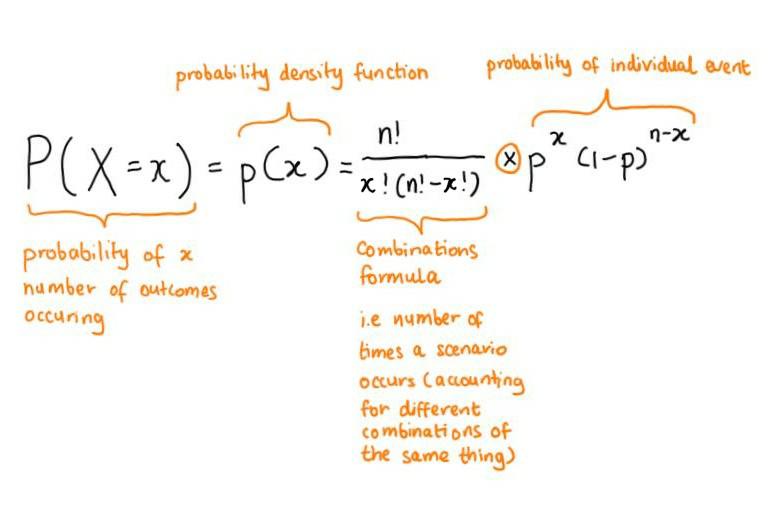 probability density function
probability of individual event
P(X=x) = p(x) = n! / x!(n!-x!) × p^x (1-p)^(n-x)
probability of x
number of outcomes
occuring
Combinations
formula
i.e number of
times a scenario
occurs (accounting
for different
combinations of
the same thing)